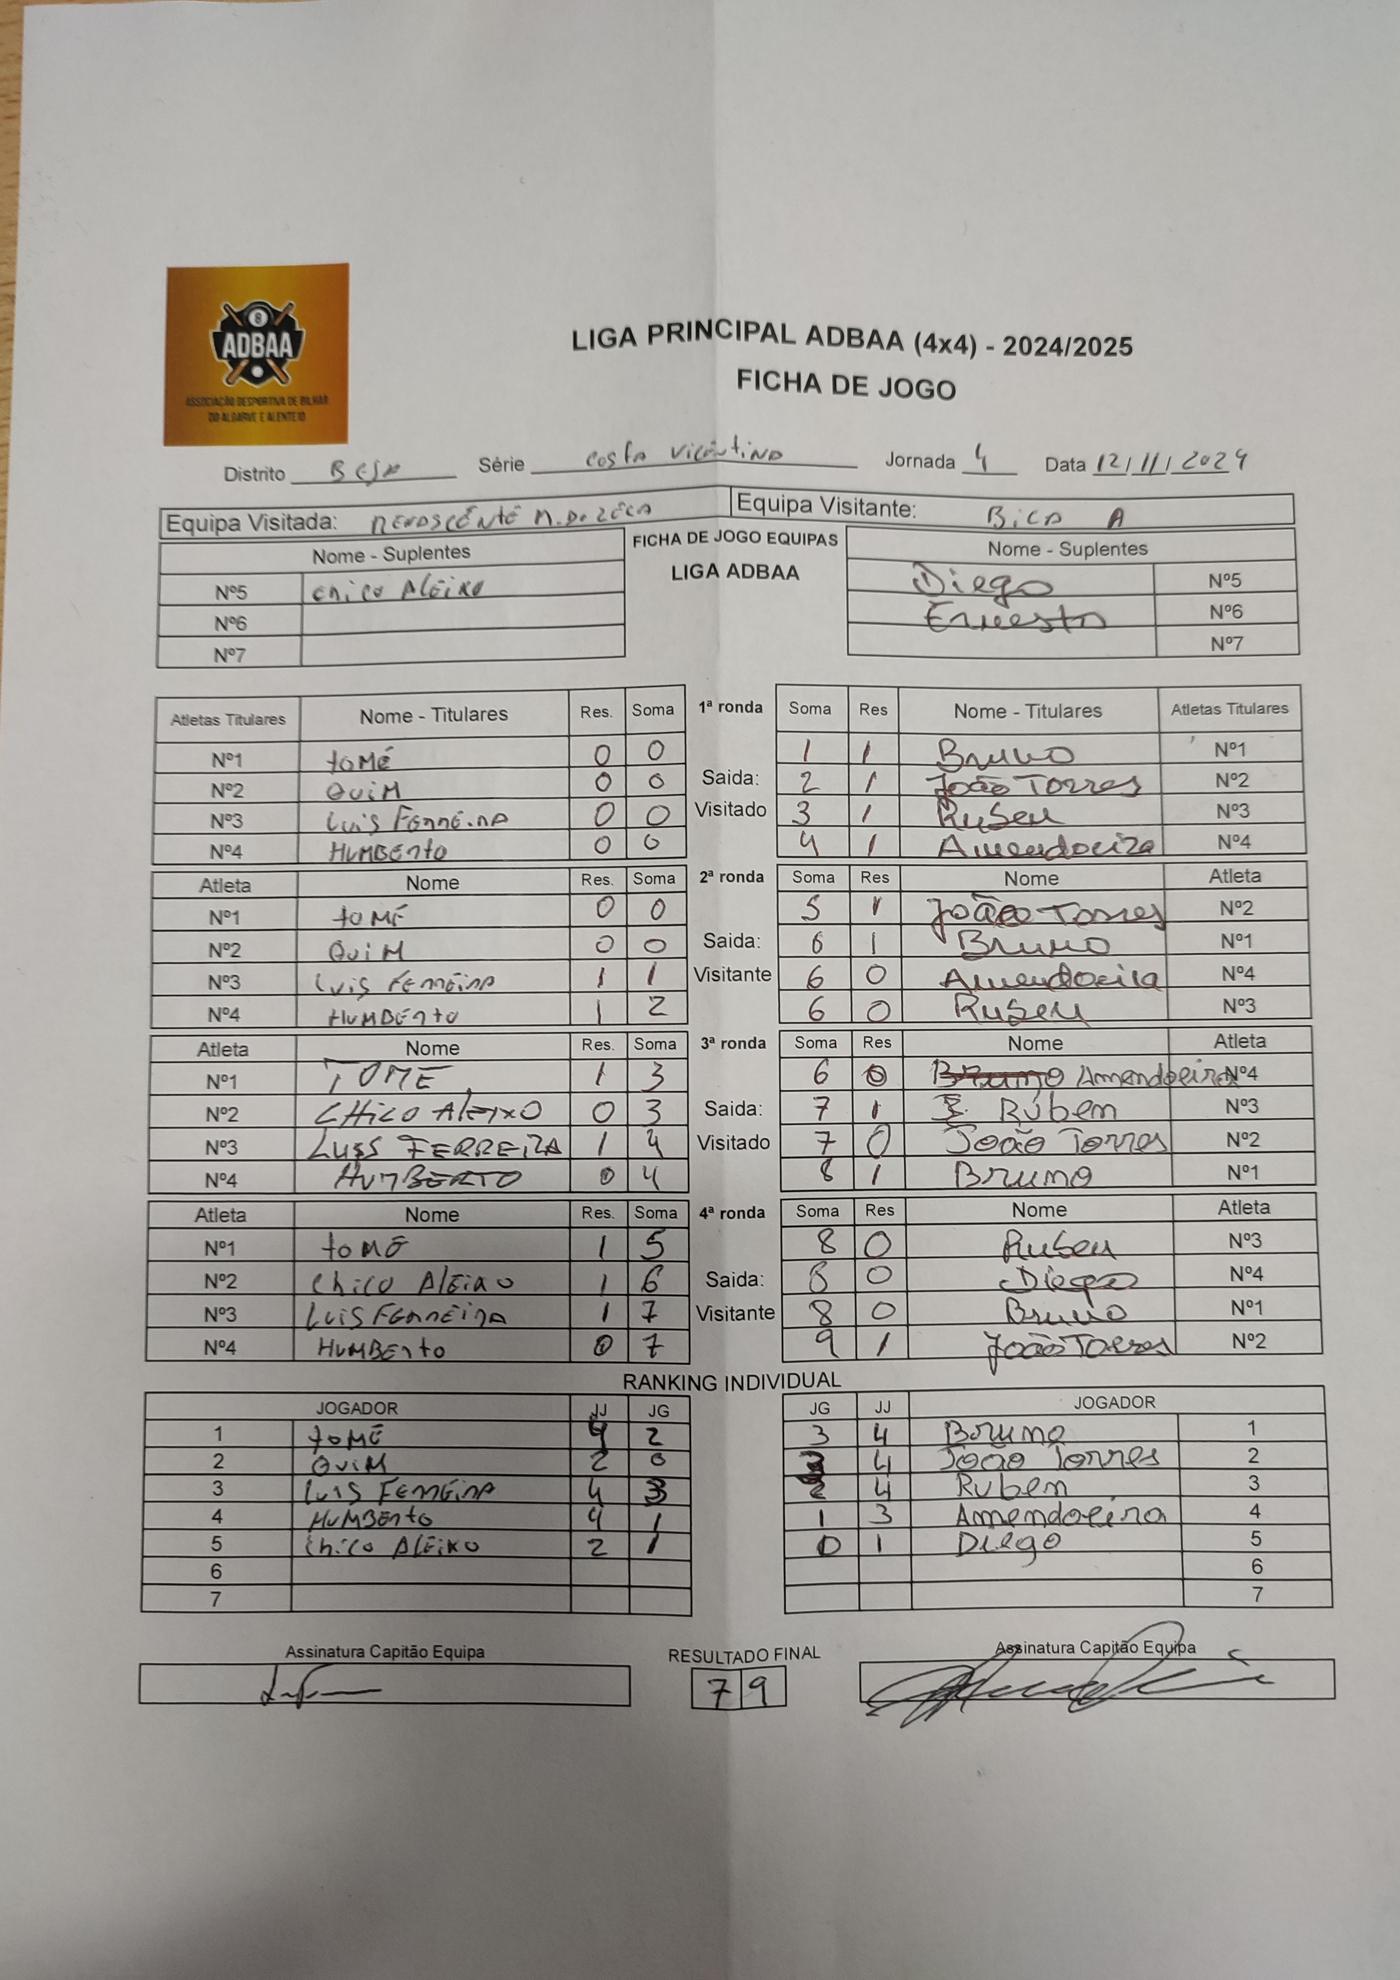 8
ADBAA
ASSOCIAÇÃO DESPORTIVA DE BILHAR
DO ALGARVE E ALENTEJO
LIGA PRINCIPAL ADBAA (4x4) - 2024/2025
FICHA DE JOGO
Distrito BEJA Série COSTA VICENTINA Jornada 4 Data 12/11/2024
Equipa Visitada: M. DO ZÉCA Equipa Visitante: BICA A
Nome - Suplentes FICHA DE JOGO EQUIPAS Nome - Suplentes
LIGA ADBAA
Nº5 Chico Aleixo Diego Nº5
Nº6 Ernesto Nº6
Nº7 Nº7
Atletas Titulares Nome - Titulares Res. Soma 1ª ronda Soma Res Nome - Titulares Atletas Titulares
Nº1 tomé 0 0 1 1 Bruno Nº1
Nº2 QuiM 0 0 Saida: 2 1 João Torres Nº2
Nº3 Luis Ferreira 0 0 Visitado 3 1 Ruben Nº3
Nº4 HUMBErto 0 0 4 1 Amendoeira Nº4
Atleta Nome Res. Soma 2ª ronda Soma Res Nome Atleta
Nº1 toMÉ 0 0 5 1 João Torres Nº2
Nº2 QuiM 0 0 Saida: 6 1 Bruno Nº1
Nº3 Luis Ferreira 1 1 Visitante 6 0 Amendoeira Nº4
Nº4 HUMBErto 1 2 6 0 Ruben Nº3
Atleta Nome Res. Soma 3ª ronda Soma Res Nome Atleta
Nº1 TOMÉ 1 3 6 0 Bruno Amendoeira Nº4
Nº2 CHICO ALEIXO 0 3 Saida: 7 1 Rúbem Nº3
Nº3 LUIS FERREIRA 1 4 Visitado 7 0 João Torres Nº2
Nº4 HUMBERTO 0 4 8 1 Bruno Nº1
Atleta Nome Res. Soma 4ª ronda Soma Res Nome Atleta
Nº1 toMÉ 1 5 8 0 Ruben Nº3
Nº2 Chico Aleixo 1 6 Saida: 8 0 Diego Nº4
Nº3 Luis Ferreira 1 7 Visitante 8 0 Bruno Nº1
Nº4 HUMBErto 0 7 9 1 João Torres Nº2
RANKING INDIVIDUAL
JOGADOR JJ JG JG JJ JOGADOR
1 toMÉ 4 2 3 4 Bruno 1
2 QuiM 2 0 4 João Torres 2
3 Luis Ferreira 4 3 2 4 Rubem 3
4 HUMBErto 4 1 1 3 Amendoeira 4
5 Chico Aleixo 2 1 0 1 Diego 5
6 6
7 7
Assinatura Capitão Equipa RESULTADO FINAL Assinatura Capitão Equipa
7 9